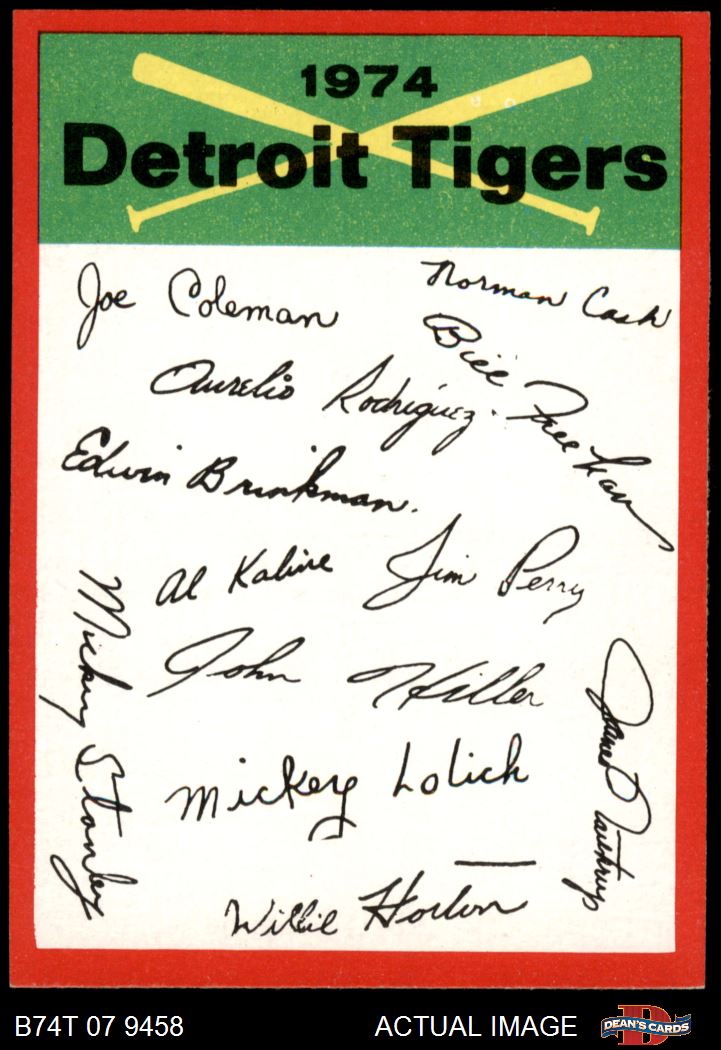 1974
Detroit Tigers
Joe Coleman
Norman Cash
Aurelio Rodriguez.
Bill Freehan
Edwin Brinkman.
Al Kaline
Jim Perry
Mickey Stanley
John Hiller
James Northrup
Mickey Lolich
Willie Horton
B74T 07 9458
ACTUAL IMAGE
D
DEAN'S CARDS